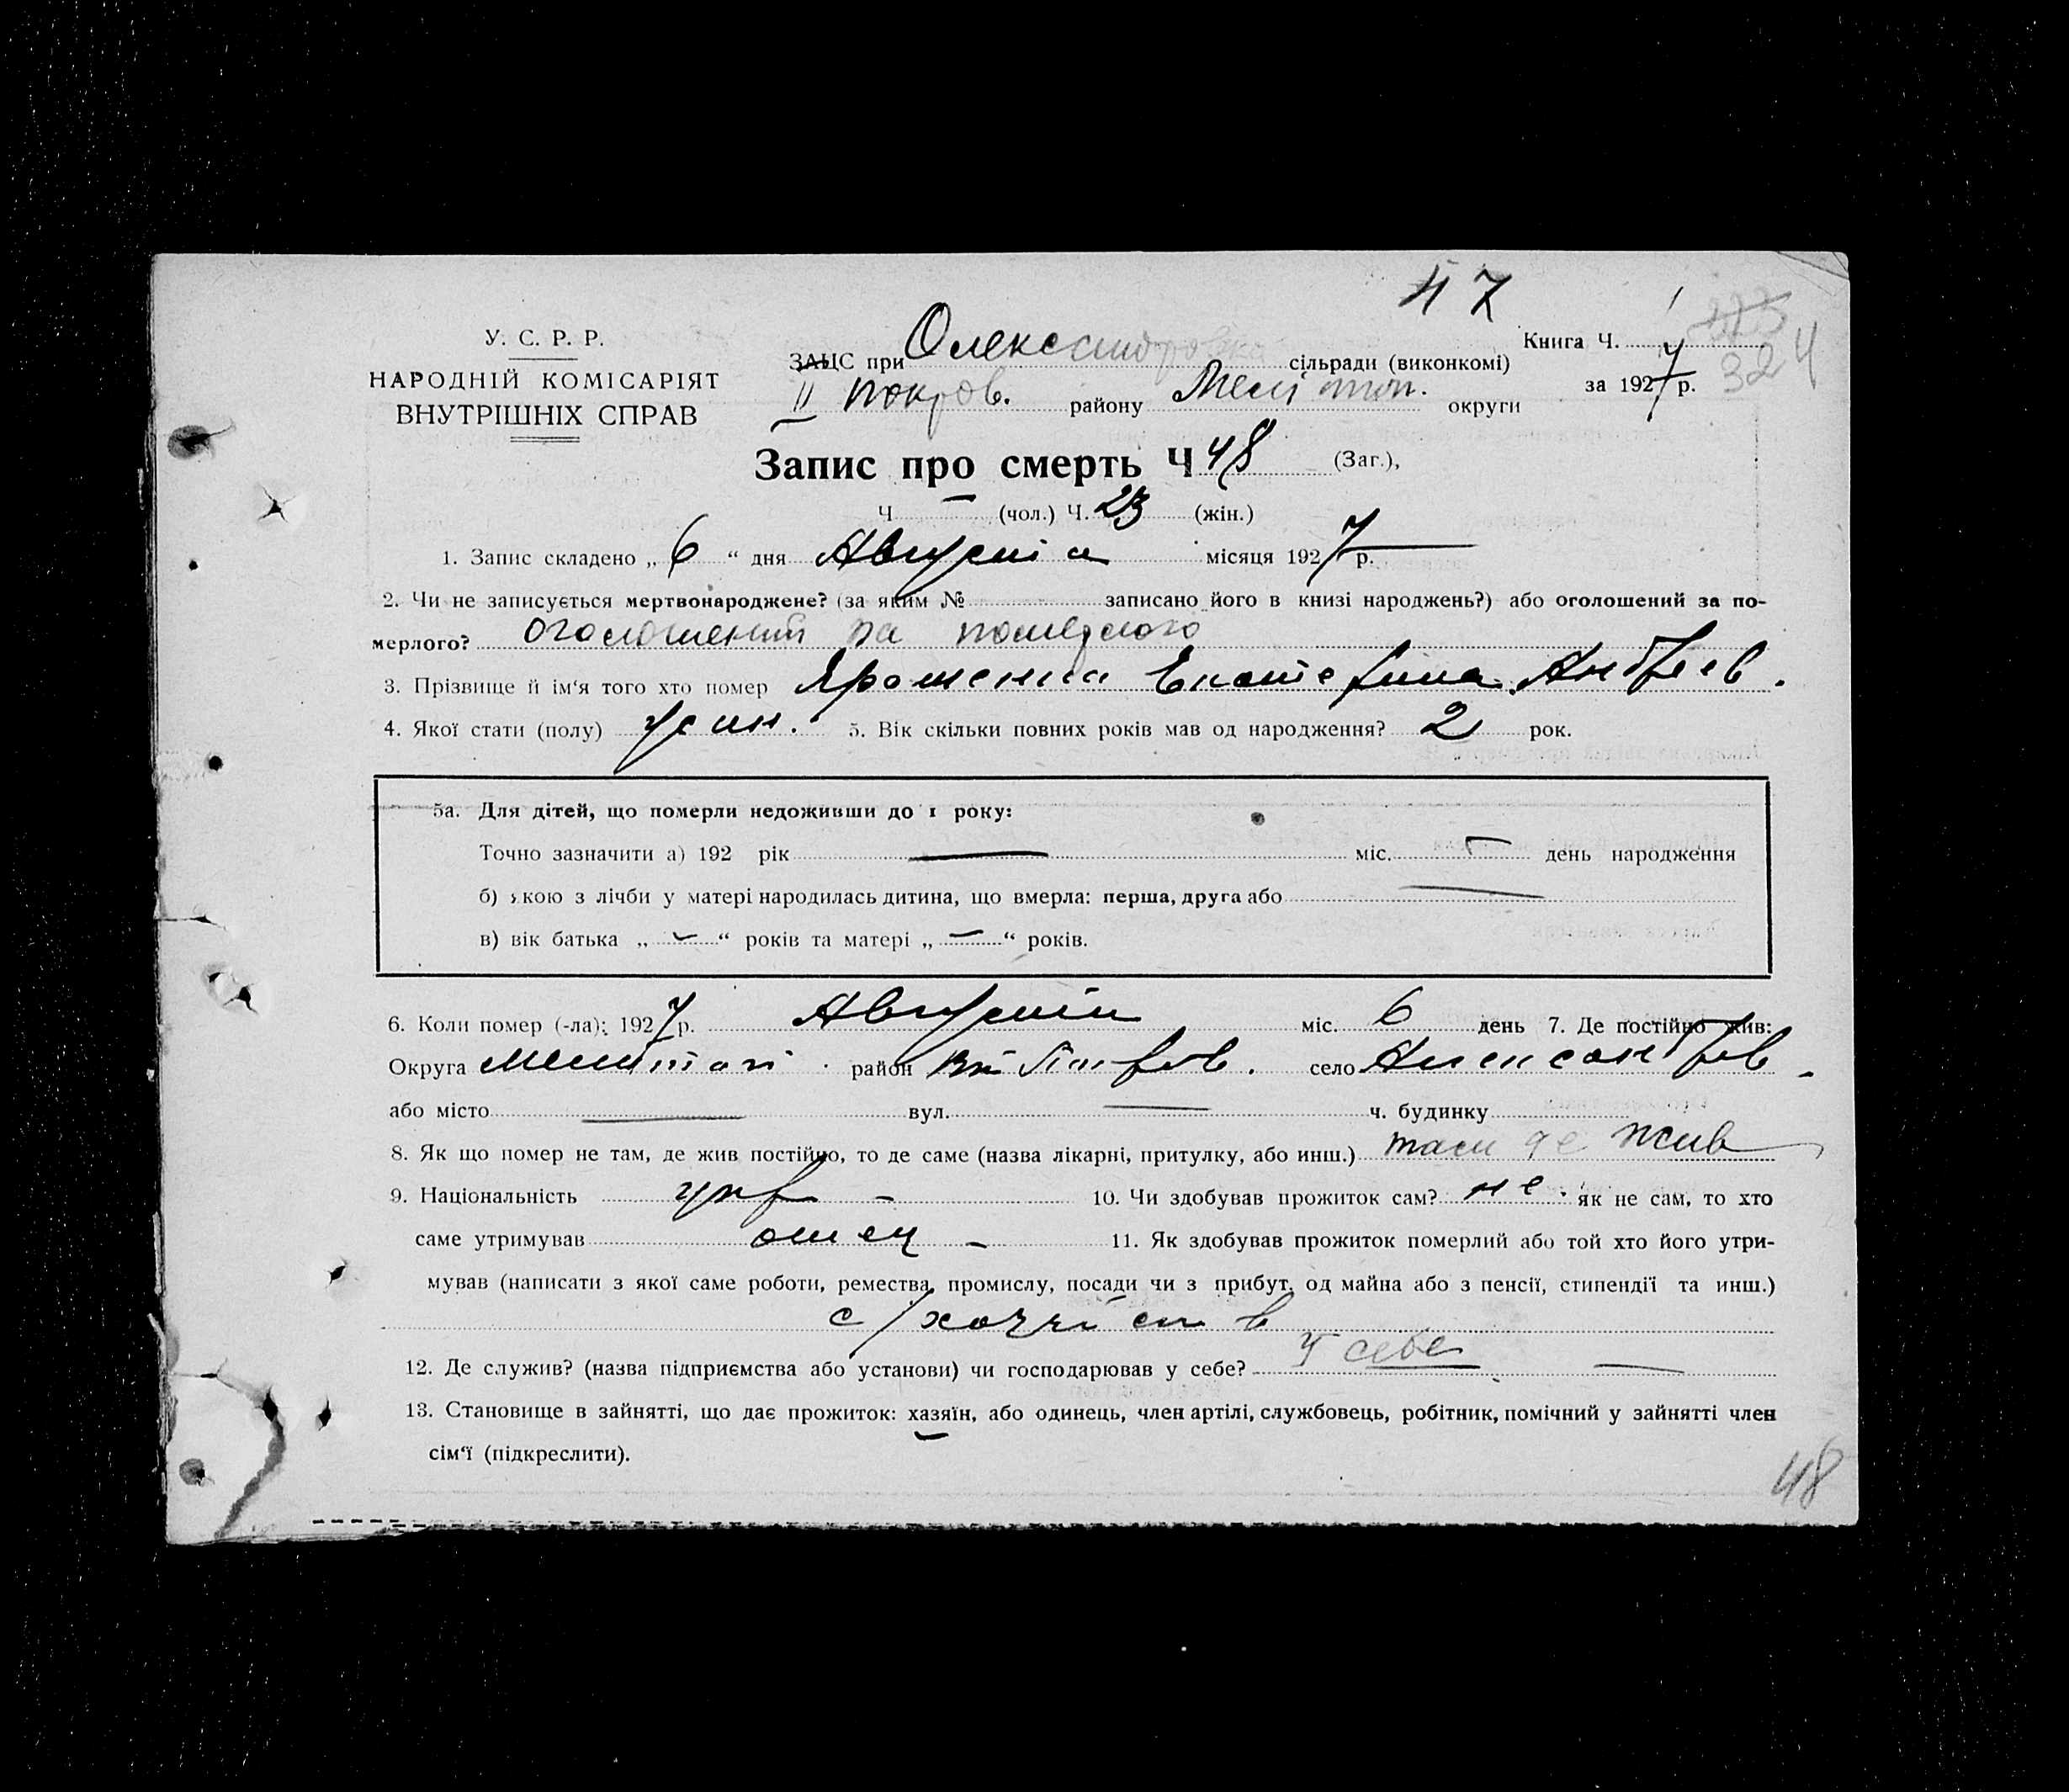 47
У. С. Р. Р.
НАРОДНІЙ КОМІСАРІЯТ
ВНУТРІШНІХ СПРАВ
ЗАЦС при Олександровка сільради (виконкомі)
Книга Ч. 1
II покров. району Мелітоп. округи
за 1927 р.
324
Запис про смерть Ч 48 (Заг.),
Ч — (чол.) Ч. 23 (жін.)
1. Запис складено „ 6 “ дня Августа місяця 1927 р.
2. Чи не записується мертвонароджене? (за яким № записано його в книзі народжень?) або оголошений за по-
мерлого? оголошений за померлого
3. Прізвище й ім'я того хто помер Ярошенка Екатерина Андреев.
4. Якої стати (полу) жін. 5. Вік скільки повних років мав од народження? 2 рок.
5а. Для дітей, що померли недоживши до 1 року:
Точно зазначити а) 192 рік — міс. — день народження
б) якою з лічби у матері народилась дитина, що вмерла: перша, друга або —
в) вік батька „ — “ років та матері „ — “ років.
6. Коли помер (-ла): 1927 р. Августа міс. 6 день 7. Де постійно жив:
Округа район село Александров.
або місто — вул. — ч. будинку
8. Як що помер не там, де жив постійно, то де саме (назва лікарні, притулку, або инш.) там де жив
9. Національність укр — 10. Чи здобував прожиток сам? не. як не сам, то хто
саме утримував отец — 11. Як здобував прожиток померлий або той хто його утри-
мував (написати з якої саме роботи, ремества, промислу, посади чи з прибут. од майна або з пенсії, стипендії та инш.)
с/хозяйств
12. Де служив? (назва підприємства або установи) чи господарював у себе? У себе —
13. Становище в зайнятті, що дає прожиток: хазяїн, або одинець, член артілі, службовець, робітник, помічний у зайнятті член
сім'ї (підкреслити).
48